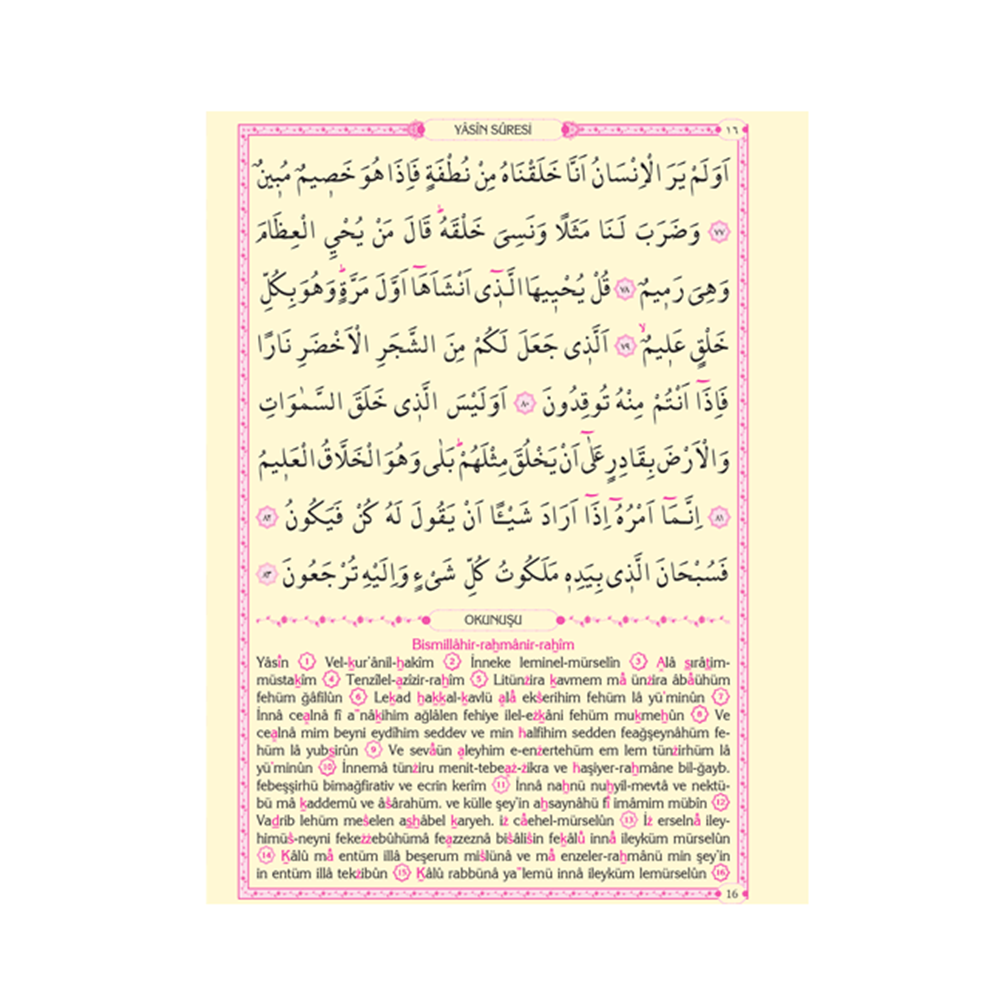 YÂSİN SÛRESİ ١٦
اَوَلَمْ يَرَ الْاِنْسَانُ اَنَّا خَلَقْنَاهُ مِنْ نُطْفَةٍ فَاِذَا هُوَ خَص۪يمٌ مُب۪ينٌ
٧٧ وَضَرَبَ لَنَا مَثَلًا وَنَسِيَ خَلْقَهُۜ قَالَ مَنْ يُحْيِ الْعِظَامَ
وَهِيَ رَم۪يمٌ ٧٨ قُلْ يُحْي۪يهَا الَّذ۪ٓي اَنْشَاَهَٓا اَوَّلَ مَرَّةٍۜ وَهُوَ بِكُلِّ
خَلْقٍ عَل۪يمٌۙ ٧٩ اَلَّذ۪ي جَعَلَ لَكُمْ مِنَ الشَّجَرِ الْاَخْضَرِ نَارًا
فَاِذَٓا اَنْتُمْ مِنْهُ تُوقِدُونَ ٨٠ اَوَلَيْسَ الَّذ۪ي خَلَقَ السَّمٰوَاتِ
وَالْاَرْضَ بِقَادِرٍ عَلٰٓى اَنْ يَخْلُقَ مِثْلَهُمْۜ بَلٰى وَهُوَ الْخَلَّاقُ الْعَل۪يمُ
٨١ اِنَّمَٓا اَمْرُهُٓ اِذَٓا اَرَادَ شَيْـًٔا اَنْ يَقُولَ لَهُ كُنْ فَيَكُونُ ٨٢
فَسُبْحَانَ الَّذ۪ي بِيَدِه۪ مَلَكُوتُ كُلِّ شَيْءٍ وَاِلَيْهِ تُرْجَعُونَ ٨٣
OKUNUŞU
Bismillâhir-raḫmânir-raḫîm
Yâsîn 1 Vel-ḵur'ânil-ḫakîm 2 İnneke leminel-mürselîn 3 Alâ sırâtim-
müstaḵîm 4 Tenzîlel-azîzir-raḫîm 5 Litünżira ḵavmem mâ ünżira âbâühüm
fehüm ğâfilûn 6 Leḵad ḫaḵḵal-ḵavlü alâ ekśerihim fehüm lâ yü'minûn 7
İnnâ cealnâ fî a'nâḵihim ağlâlen fehiye ilel-eżḵâni fehüm muḵmeḫûn 8 Ve
cealnâ mim beyni eydîhim seddev ve min halfihim sedden feağşeynâhüm fe-
hüm lâ yubsirûn 9 Ve sevâün aleyhim e-enżertehüm em lem tünżirhüm lâ
yü'minûn 10 İnnemâ tünżiru menit-tebeaż-żikra ve haşiyer-raḫmâne bil-ğayb.
febeşşirhü bimağfirativ ve ecrin kerîm 11 İnnâ naḫnü nuḫyil-mevtâ ve nektü-
bü mâ ḵaddemû ve âśârahüm. ve külle şey'in aḫsaynâhü fî imâmim mübîn 12
Vadrib lehüm meśelen asḫâbel ḵaryeh. iż câehel-mürselûn 13 İż erselnâ iley-
himüś-neyni fekeżżebûhümâ feazzeznâ biśâliśin feḵâlû innâ ileyküm mürselûn
14 Ḵâlû mâ entüm illâ beşerum miślünâ ve mâ enzeler-raḫmânü min şey'in
in entüm illâ tekżibûn 15 Ḵâlû rabbünâ ya'lemü innâ ileyküm lemürselûn 16
16